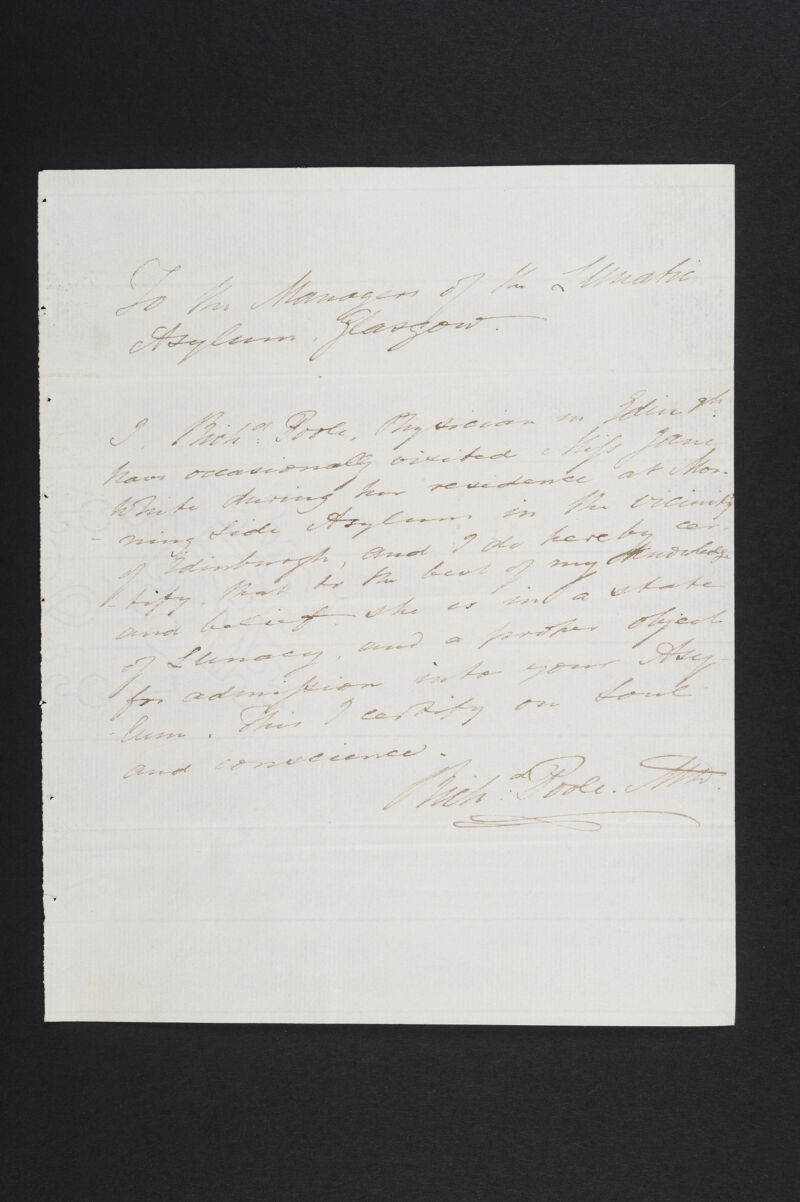 To the Managers of the Lunatic
Asylum, Glasgow.
I, Richd. Poole, Physician in Edinbgh.
have occasionally visited Miss Jane
White during her residence at Mor-
-ning Side Asylum, in the vicinity
of Edinburgh, and I do hereby cer-
-tify, that to the best of my knowledge
and belief she is in a state
of Lunacy, and a proper object
for admission into your Asy-
-lum. This I certify on Soul
and conscience.
Richd. Poole. MD.